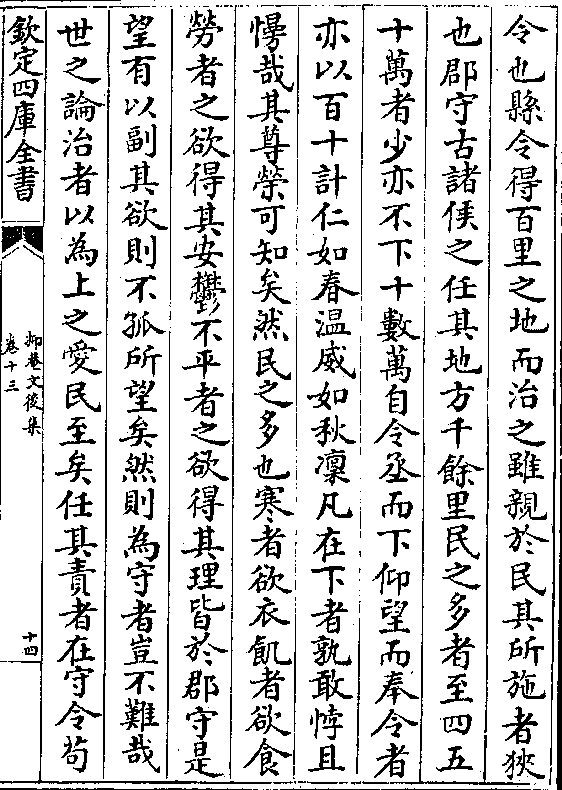 令也縣令得百里之地而治之雖親於民其所施者狹
也郡守古諸侯之任其地方千餘里民之多者至四五
十萬者少亦不下十數萬自令丞而下仰望而奉令者
亦以百十計仁如春温威如秋凛凡在下者孰敢悖且
慢哉其尊榮可知矣然民之多也寒者欲衣飢者欲食
勞者之欲得其安鬱不平者之欲得其理皆於郡守是
望有以副其欲則不孤所望矣然則為守者豈不難哉
世之論治者以為上之愛民至矣任其責者在守令茍
欽定四庫全書
抑菴文後集
卷十三
十四